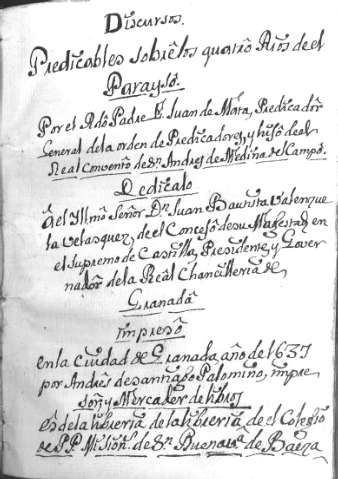 Discursos.
Predicables sobre los quatro Rios de el
Parayso.
Por el Rdo Padre F. Juan de Mata, Predicador
General de la orden de Predicadores, y hijo de el
Real Convento de Sn. Andres de Medina del Campo.
Dedicalo
Al Illmo Señor Dn. Juan Bautista Valenzue
la Velasquez, de el Consejo de su Magestad en
el supremo de Castilla, Presidente, y Gover
nador de la Real Chancilleria de
Granada
Impreso
en la Ciudad de Granada, año de 1637
por Andres de Santiago Palomino, impre
sor, y Mercader de libros
es de la libreria de la libreria de el Colegio
de P.P. Mision.s de Sn. Buenava. de Baeza